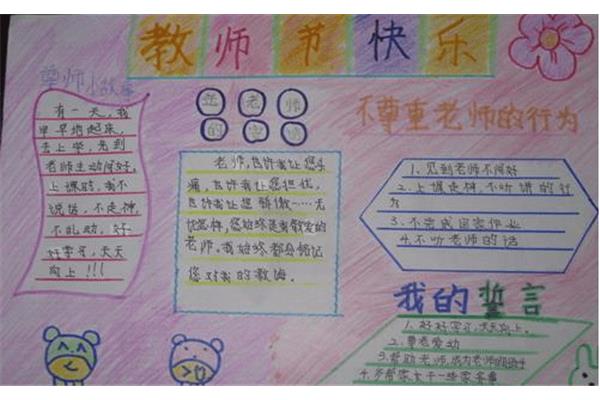 教师节快乐
尊师小故事
有一天，我
早早地起来，
去上学，先到
老师主动问好，
上课时，我不
说话，不走神，
不乱动，好
好学习，天天
向上！！！
老师
的
老师，也许我让您头
痛，也许我让您担忧，
也许我让您骄傲……无
论怎样，您始终是我敬爱的
老师。我始终都会铭记
您对我的教诲。
不尊重老师的行为
1、见到老师不问好
2、上课走神，不听讲的行
为
3、不完成回家作业
4、不听老师的话
我的誓言
1、好好学习，天天向上。
2、尊老爱幼
3、帮助老师，成为老师的助手
4、多帮家长干一些家务事